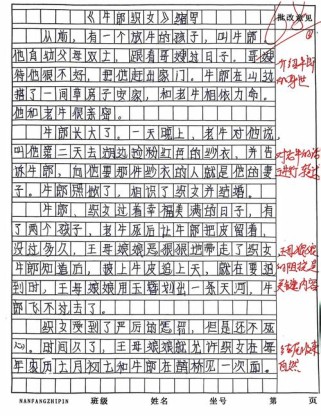 《牛郎织女》缩写
批改意见
从前，有一个放牛的孩子，叫牛郎，
他自幼父母双亡，跟着哥嫂过日子。哥嫂
待他很不好，把他赶出家门。牛郎在山边
搭了一间草房子安家，和老牛相依为命。
他和老牛很亲密。
牛郎长大了。一天晚上，老牛对他说，
叫他第二天去湖边捡粉红色的纱衣，并告
诉牛郎，向他要那件纱衣的人就是他的妻
子。牛郎照做了，相识了织女并结婚。
牛郎、织女过着幸福美满的日子，有
了两个孩子，老牛死后让牛郎把皮留着，
没过多久，王母娘娘恶狠狠地带走了织女，
牛郎知道后，披上牛皮追上天，就在要追
到时，王母娘娘用玉簪划出一条天河，牛
郎飞不过去了。
织女受到了严厉的惩罚，但是还不死
心。时间久了，王母娘娘就允许织女在每
年农历七月初七和牛郎在鹊桥见一次面。
介绍牛郎
的身世
对老牛的话
进行了转述
王母娘娘
的阻挠是
关键内容
结尾收束
自然
NANFANGZHIPIN 班级 姓名 坐号 第 页